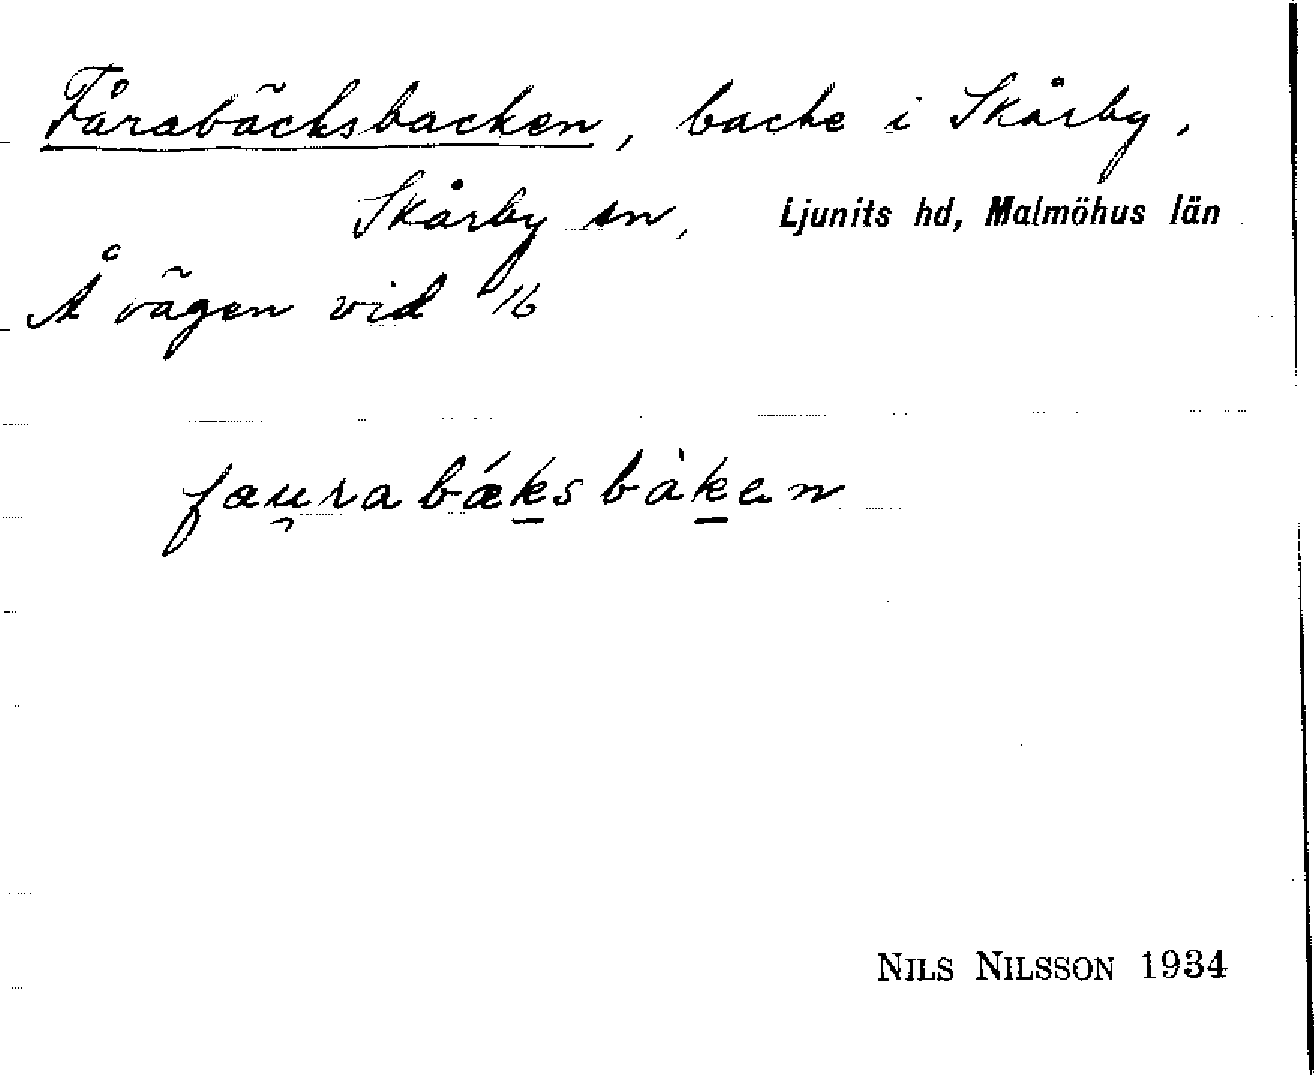 Fårabäcksbacken, backe i Skårby,
Skårby sn, Ljunits hd, Malmöhus län
Å vägen vid 1/6
fæu̯rabǽksbàkan
NILS NILSSON 1934